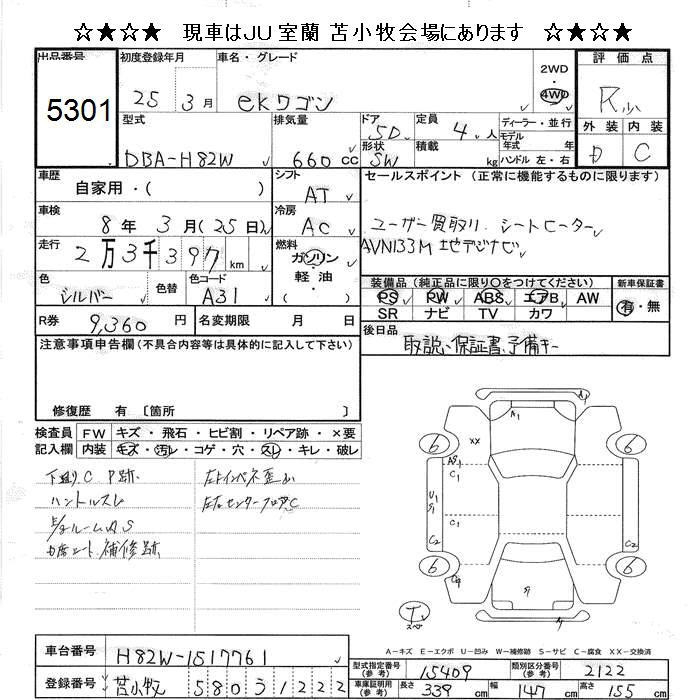 ☆★☆★ 現車はJU室蘭 苫小牧会場にあります ☆★☆★
出品番号
5301
初度登録年月
25年3月
車名・グレード
ekワゴン
2WD
4WD
評価点
R
外装 内装
C
型式
DBA-H82W
排気量
660 cc
ドア
5D
形状
SW
定員
4人
積載
kg
ディーラー・並行
モデル年式 年
ハンドル 左・右
車歴
自家用・( )
シフト
AT
車検
8年 3月(25日)
冷房
AC
走行
2万3千397 km
燃料
ガソリン
軽油
( )
色
シルバー
色替
色コード
A31
R券
9,360 円
名変期限 月 日
セールスポイント (正常に機能するものに限ります)
ユーザー買取り シートヒーター
AVN133M 地デジナビ
装備品 (純正品に限り○をつけてください)
PS PW ABS エアB AW
SR ナビ TV カワ
新車保証書
有・無
後日品
取説、保証書、予備キー
注意事項申告欄(不具合内容等は具体的に記入して下さい)
修復歴 有 [箇所 ]
検査員記入欄
FW キズ・飛石・ヒビ割・リペア跡・×要
内装 キズ・汚レ・コゲ・穴・スレ・キレ・破レ
下廻りC P跡
ハンドルスレ
ルーム内S
補修跡
左右センターフロアC
A1
A1
XX
6
6
6
6
C1
U1
S1
C1
C2
C2
T
スペア
A-キズ E-エクボ U-凹み W-補修跡 S-サビ C-腐食 XX-交換済
車台番号
H82W-1517761
登録番号
苫小牧 580 1222
型式指定番号
(参考)
15409
類別区分番号
(参考)
2122
車庫証明用
(参考)
長さ 339 cm
幅 147 cm
高さ 155 cm